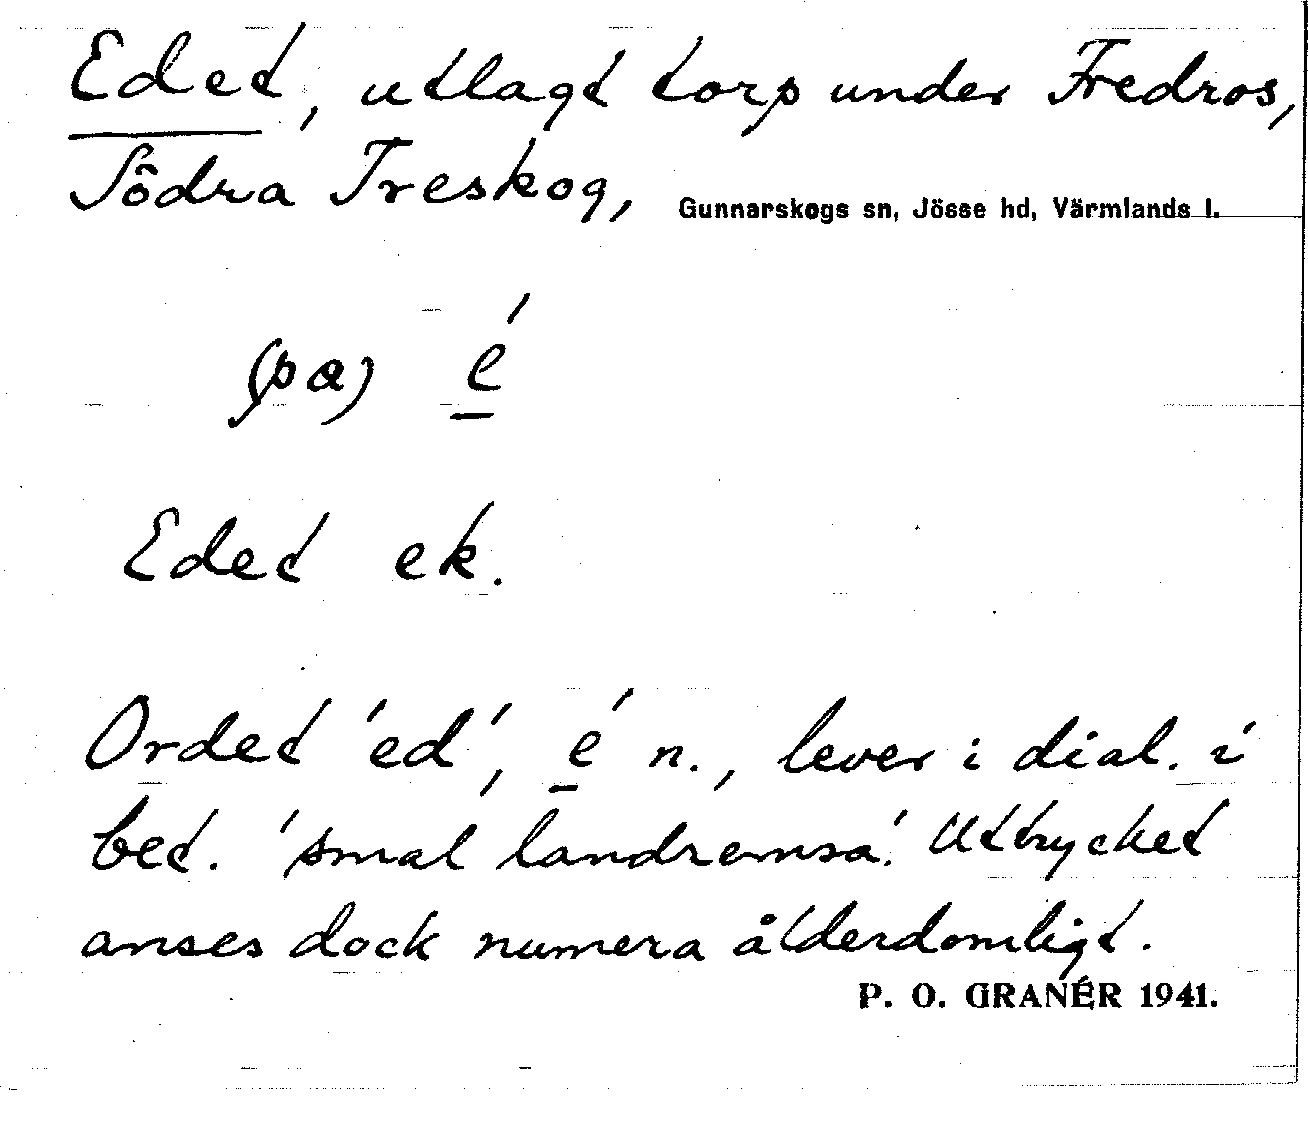 Edet, utlagt torp under Fredros,
Södra Treskog, Gunnarskogs sn, Jösse hd, Värmlands l.
(pa) é
Edet ek.
Ordet 'ed', é n., lever i dial. i
bet. 'smal landremsa'. Uttrycket
anses dock numera ålderdomligt.
P. O. GRANÉR 1941.